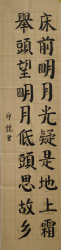 床前明月光疑是地上霜
舉頭望明月低頭思故乡